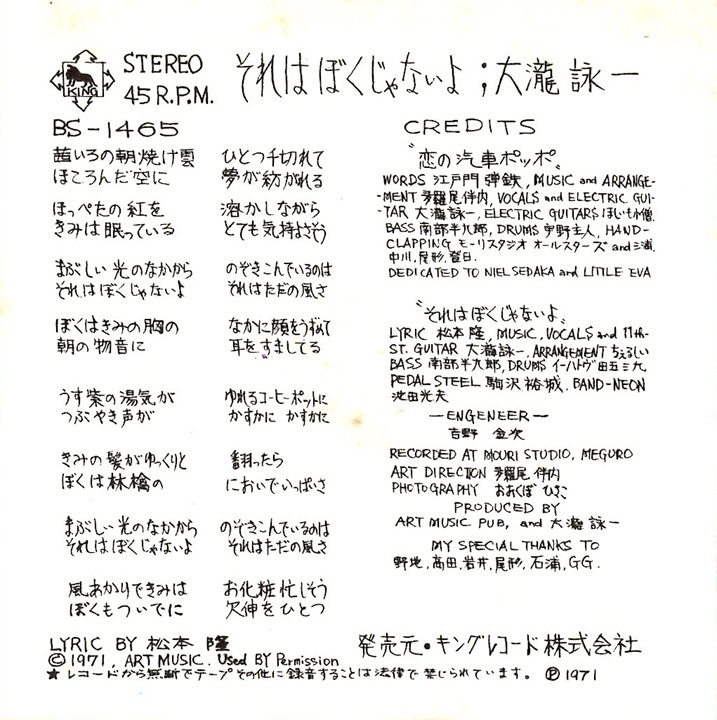 KING
STEREO
45 R.P.M.
それは ぼくじゃないよ ; 大瀧 詠一
BS-1465
茜いろの朝焼け雲 ひとつ千切れて
ほころんだ空に 夢が紡がれる
ほっぺたの紅を 溶かしながら
きみは眠っている とても気持よさそう
まぶしい光のなかから のぞきこんでいるのは
それはぼくじゃないよ それはただの風さ
ぼくはきみの胸の なかに顔をうずめて
朝の物音に 耳をすましてる
うす紫の湯気が ゆれるコーヒーポットに
つぶやき声が かすかに かすかに
きみの髪がゆっくりと 翻ったら
ぼくは林檎の においでいっぱいさ
まぶしい光のなかから のぞきこんでいるのは
それはぼくじゃないよ それはただの風さ
風あかりできみは お化粧忙しそう
ぼくもついでに 欠伸をひとつ
LYRIC BY 松本 隆
© 1971, ART MUSIC. Used BY Permission
★ レコードから無断でテープその他に録音することは法律で禁じられています。 Ⓟ1971
CREDITS
"恋の汽車ポッポ"
WORDS 江戸門 弾鉄, MUSIC and ARRANGE-
-MENT 多羅尾伴内, VOCALS and ELECTRIC GUI-
-TAR 大瀧詠一, ELECTRIC GUITARS ほしいも小僧.
BASS 南部半九郎, DRUMS 宇野主人, HAND-
CLAPPING モーリスタジオ オールスターズ and 三浦.
中川, 尾形, 登日.
DEDICATED TO NIEL SEDAKA and LITTLE EVA
"それはぼくじゃないよ"
LYRIC 松本隆, MUSIC, VOCALS and 11th-
ST. GUITAR 大瀧詠一, ARRANGEMENT ちぇるしい
BASS 南部半九郎, DRUMS イーハトヴ田五三九
PEDAL STEEL 駒沢裕城, BAND-NEON
池田光夫
—ENGENEER—
吉野 金次
RECORDED AT MOURI STUDIO, MEGURO
ART DIRECTION 多羅尾 伴内
PHOTOGRAPHY おおくぼ ひさこ
PRODUCED BY
ART MUSIC PUB, and 大瀧 詠一
MY SPECIAL THANKS TO
野地, 高田, 岩井, 尾形, 石浦, G.G.
発売元・キングレコード株式会社